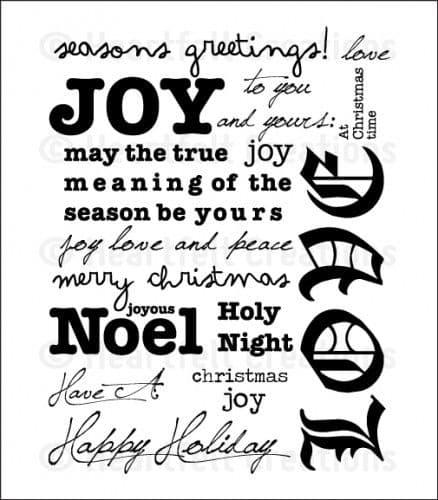 seasons greetings! love
JOY to you
and yours:
At
Christmas
time
may the true joy
meaning of the
season be yours
joy love and peace
merry christmas
joyous
Noel
Holy
Night
christmas
joy
Have A
Happy Holiday
LOVE
© Heartfelt Creations
© Heartfelt Creations
© Heartfelt Creations
© Heartfelt Creations
© Heartfelt Creations